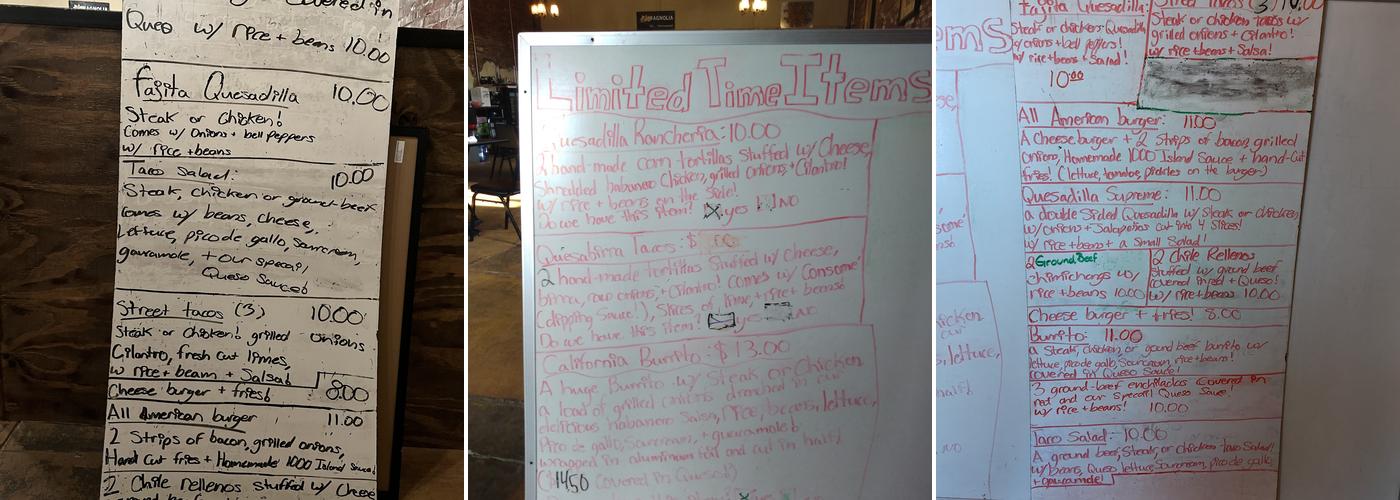 Covered in
Queso w/ rice + beans 10.00
Fajita Quesadilla 10.00
Steak or Chicken!
Comes w/ Onions + bell peppers
w/ rice + beans
Taco Salad: 10.00
Steak, chicken or ground-beef
Comes w/ beans, cheese,
Lettuce, pico de gallo, Sourcream,
guauramole, + our special
Queso Sauce!
Street tacos (3) 10.00
Steak or Chicken! grilled onions
Cilantro, fresh cut limes,
w/ rice + beans + Salsa!
Cheese burger + fries! 8.00
All American burger 11.00
2 Strips of bacon, grilled onions,
Hand Cut fries + Homemade 1000 Island Sauce!
2 Chile rellenos stuffed w/ Cheese
MAGNOLIA
Limited Time Items
Quesadilla Rancheria: 10.00
2 hand-made corn tortillas Stuffed w/ Cheese,
Shredded habanero Chicken, grilled onions, + Cilantro!
w/ rice + beans on the Side!
Do we have this item! yes NO
Quesabirria Tacos: $
2 hand-made tortillas Stuffed w/ Cheese,
birria, raw onions, + Cilantro! Comes w/ Consome'
(dipping Sauce!), Slices of lime, + rice + beans!
Do we have this item! yes NO
California Burrito: $13.00
A huge Burrito w/ Steak or Chicken
a load of grilled onions drenched in our
delicious habanero Salsa, rice, beans, lettuce,
Pico de gallo, Sourcream, + guauramole!
wrapped in aluminum foil and cut in half!
($1450 Covered in Queso!)
ms
Fajita Quesadilla:
Steak or chicken Quesadilla
w/ onions + bell peppers!
w/ rice + beans + Salad!
10.00
Street Tacos (3) 10.00
Steak or chicken tacos w/
grilled onions + Cilantro!
w/ rice + beans + Salsa!
All American burger: 11.00
A Cheese burger + 2 Strips of bacon, grilled
onions, Homemade 1000 Island Sauce + hand-Cut
fries! (lettuce, tomatoe, pickles on the burger)
Quesadilla Supreme: 11.00
a double Sided Quesadilla w/ Steak or chicken
w/ onions + Jalapeños cut into 4 Slices!
w/ rice + beans + a Small Salad!
2 Ground Beef
chimichangs w/
rice + beans 10.00
2 Chile Rellenos
Stuffed w/ ground beef
covered in red + Queso!
w/ rice + beans 10.00
Cheese burger + fries! 8.00
Burrito: 11.00
a Steak, chicken, or ground beef burrito w/
lettuce, pico de gallo, Sourcream, rice + beans!
covered in Queso Sauce!
3 ground-beef enchiladas Covered in
red and our Special Queso Sauce!
w/ rice + beans! 10.00
Taco Salad: 10.00
A ground beef, Steak, or chicken taco Salad!
w/ beans, Queso lettuce, Sourcream, pico de gallo,
+ guauramole!